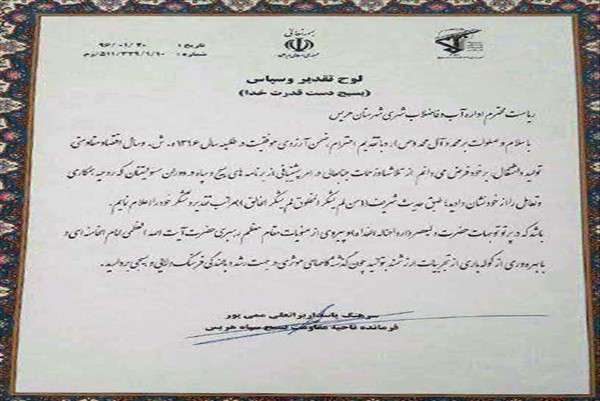 بسمه تعالی
تاریخ : ۹۶/۰۱/۲۰
شماره : ۵۱۱/۳۲۹/۱/۱۰/م
لوح تقدیر و سپاس
(بسیج دست قدرت خدا)
ریاست محترم اداره آب و فاضلاب شهری شهرستان هریس
با سلام و صلوات بر محمد و آل محمد (ص) و با تقدیم احترام، ضمن آرزوی موفقیت در طلیعه سال ۱۳۹۶ ه.ش. و سال اقتصاد مقاومتی
تولید و اشتغال، بر خود فرض می دانم از تلاشها و زحمات جنابعالی در امر پشتیبانی از برنامه های بسیج و سپاه در دوران مسئولیتتان که روحیه همکاری
و تعامل را از خود نشان دادید، طبق حدیث شریف (من لم یشکر المخلوق لم یشکر الخالق) مراتب تقدیر و تشکر خود را اعلام نمایم.
باشد که در پرتو توجهات حضرت ولیعصر (ارواحنا له الفداء) و پیروی از منویات مقام معظم رهبری حضرت آیت الله العظمی امام خامنه ای و
با بهره وری از کوله باری از تجربیات ارزشمند توانید چون گذشته گامهای موثری در جهت رشد و بالندگی فرهنگ ولایی و بسیجی بردارید.
سرهنگ پاسدار براتعلی ممی پور
فرمانده ناحیه مقاومت بسیج سپاه هریس